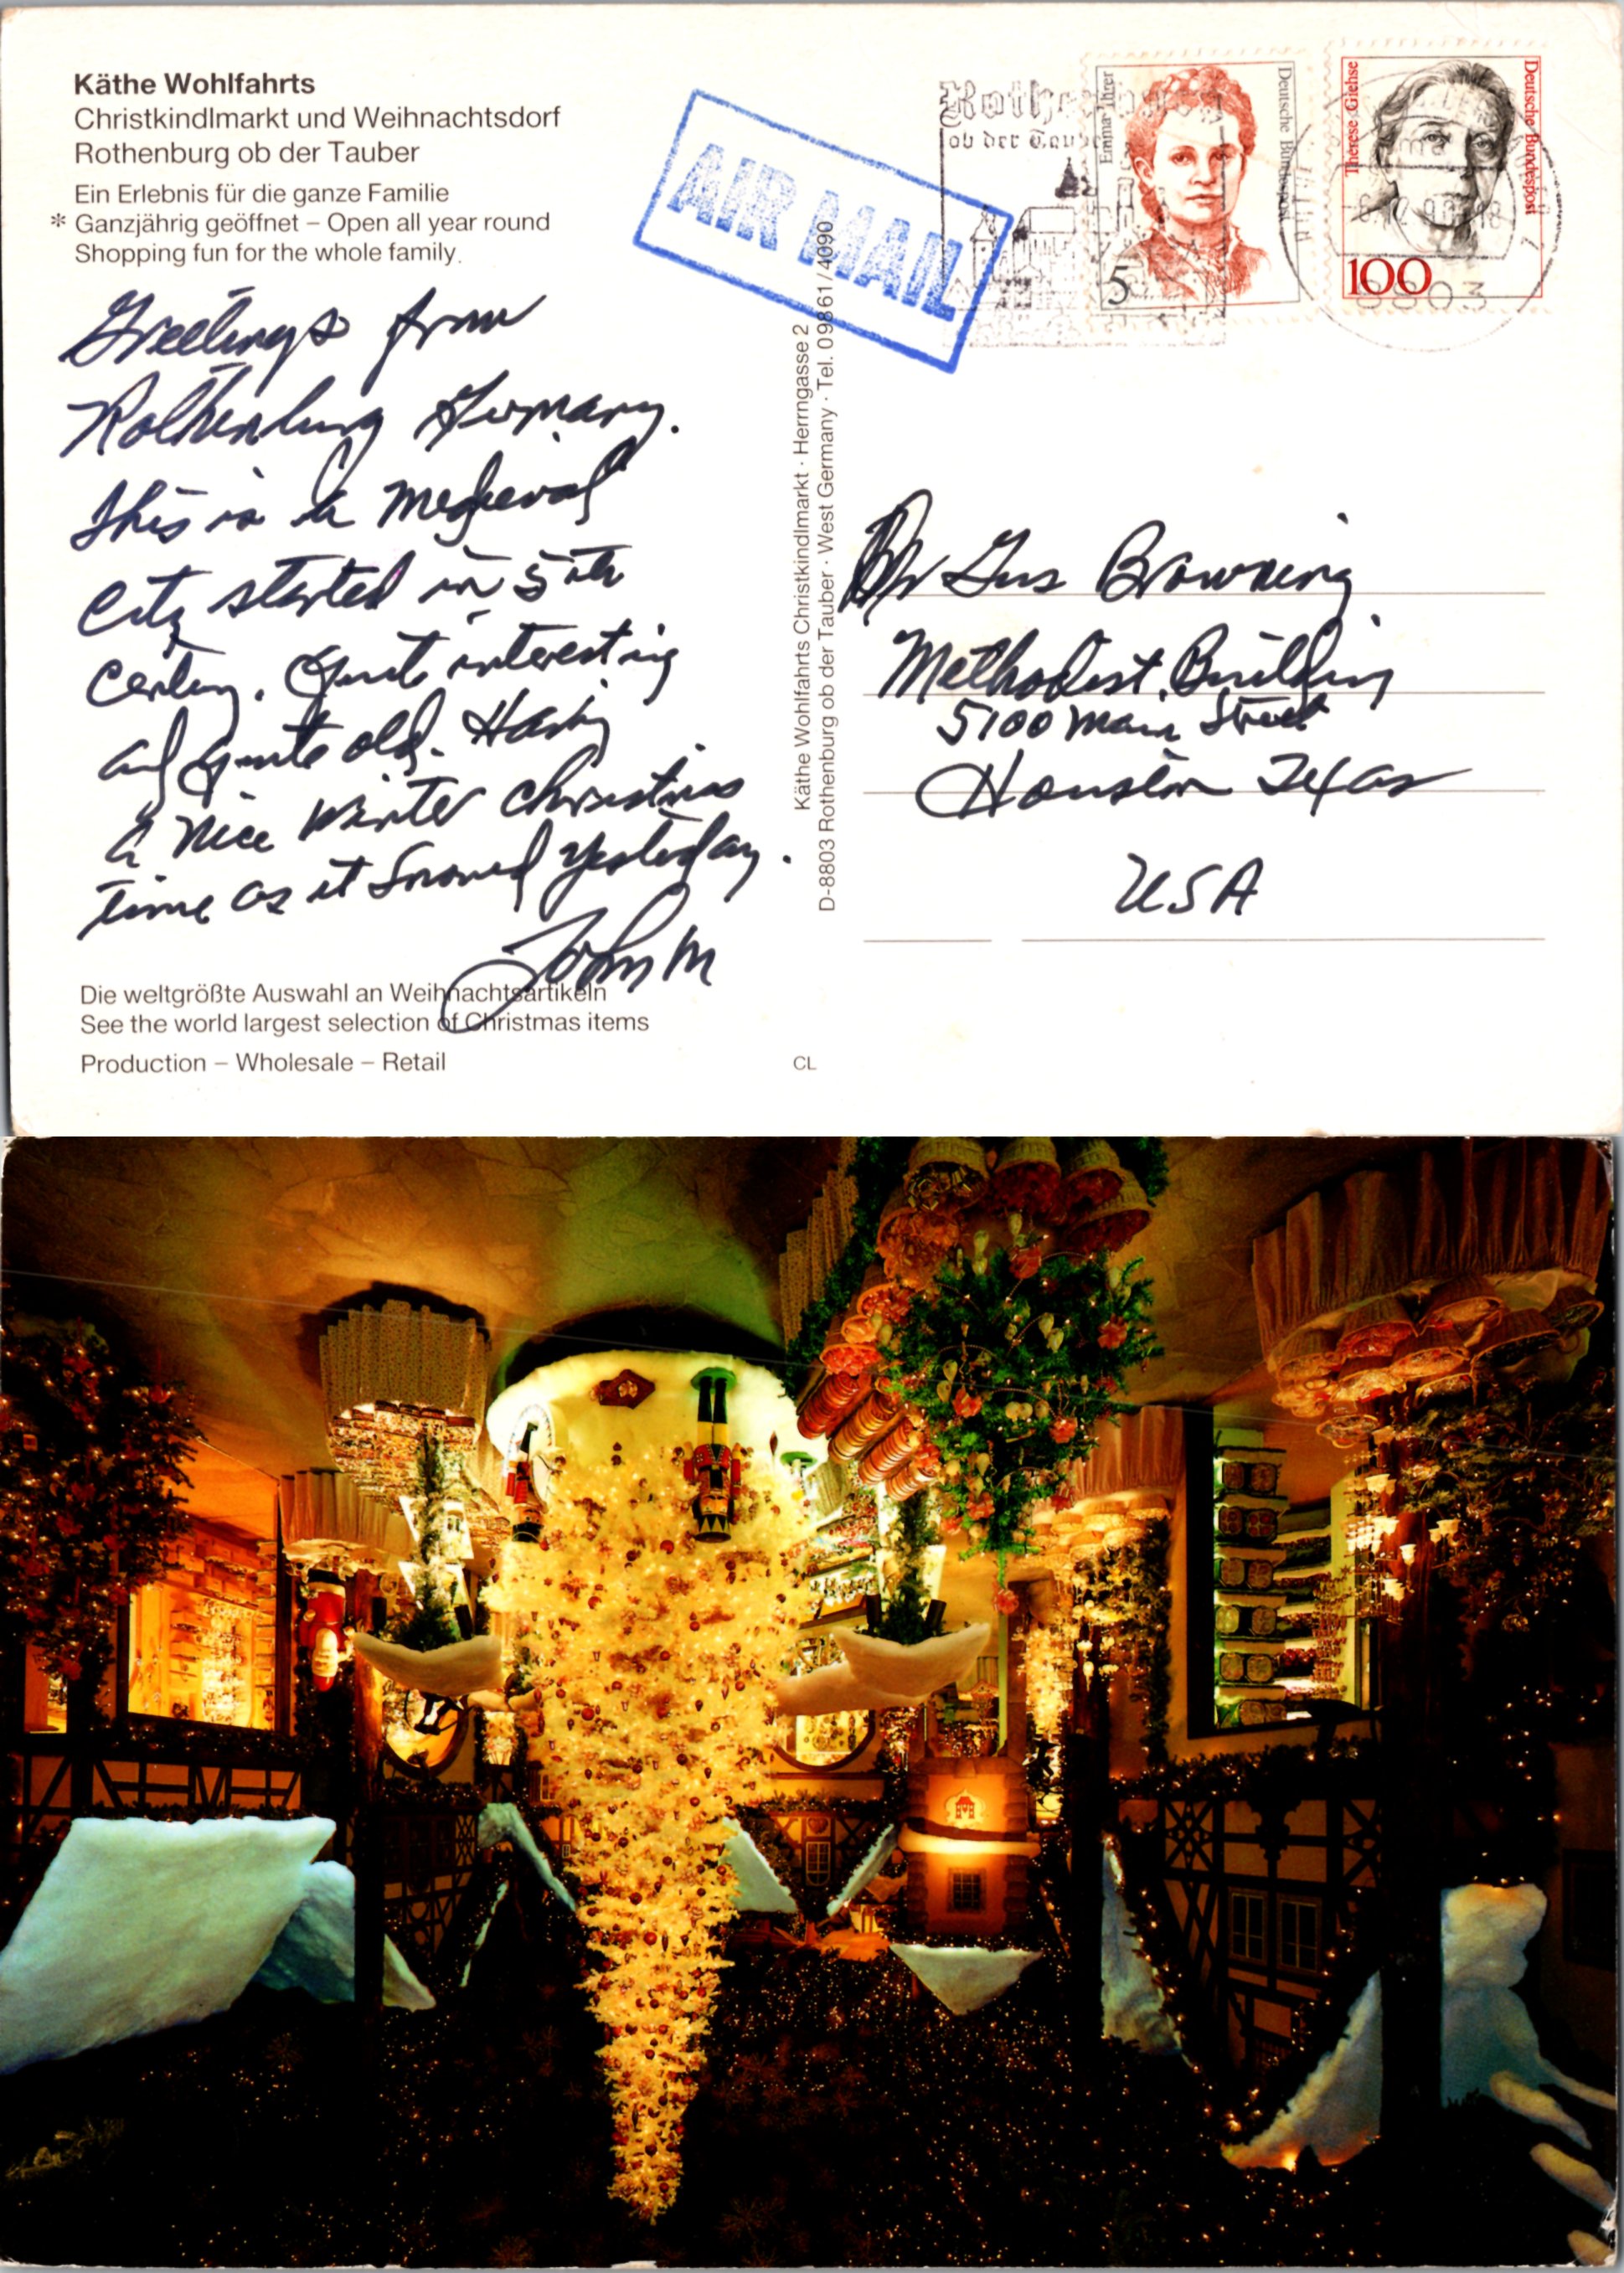 Käthe Wohlfahrts
Christkindlmarkt und Weihnachtsdorf
Rothenburg ob der Tauber
Ein Erlebnis für die ganze Familie
* Ganzjährig geöffnet – Open all year round
Shopping fun for the whole family.
Greetings from
Rothenburg Germany.
This is a Medieval
City started in 5th
Century. Quite interesting
and quite old. Having
a nice winter Christmas
time as it snowed yesterday.
John M
Die weltgrößte Auswahl an Weihnachtsartikeln
See the world largest selection of Christmas items
Production – Wholesale – Retail
CL
AIR MAIL
Käthe Wohlfahrts Christkindlmarkt · Herrngasse 2
D-8803 Rothenburg ob der Tauber · West Germany · Tel. 09861/4090
Rothenburg
ob der Tauber
Emma Ihrer
Deutsche Bundespost
5
Therese Giehse
Deutsche Bundespost
100
8803
Gus Browning
Methodist Building
5100 Main Street
Houston Texas
USA